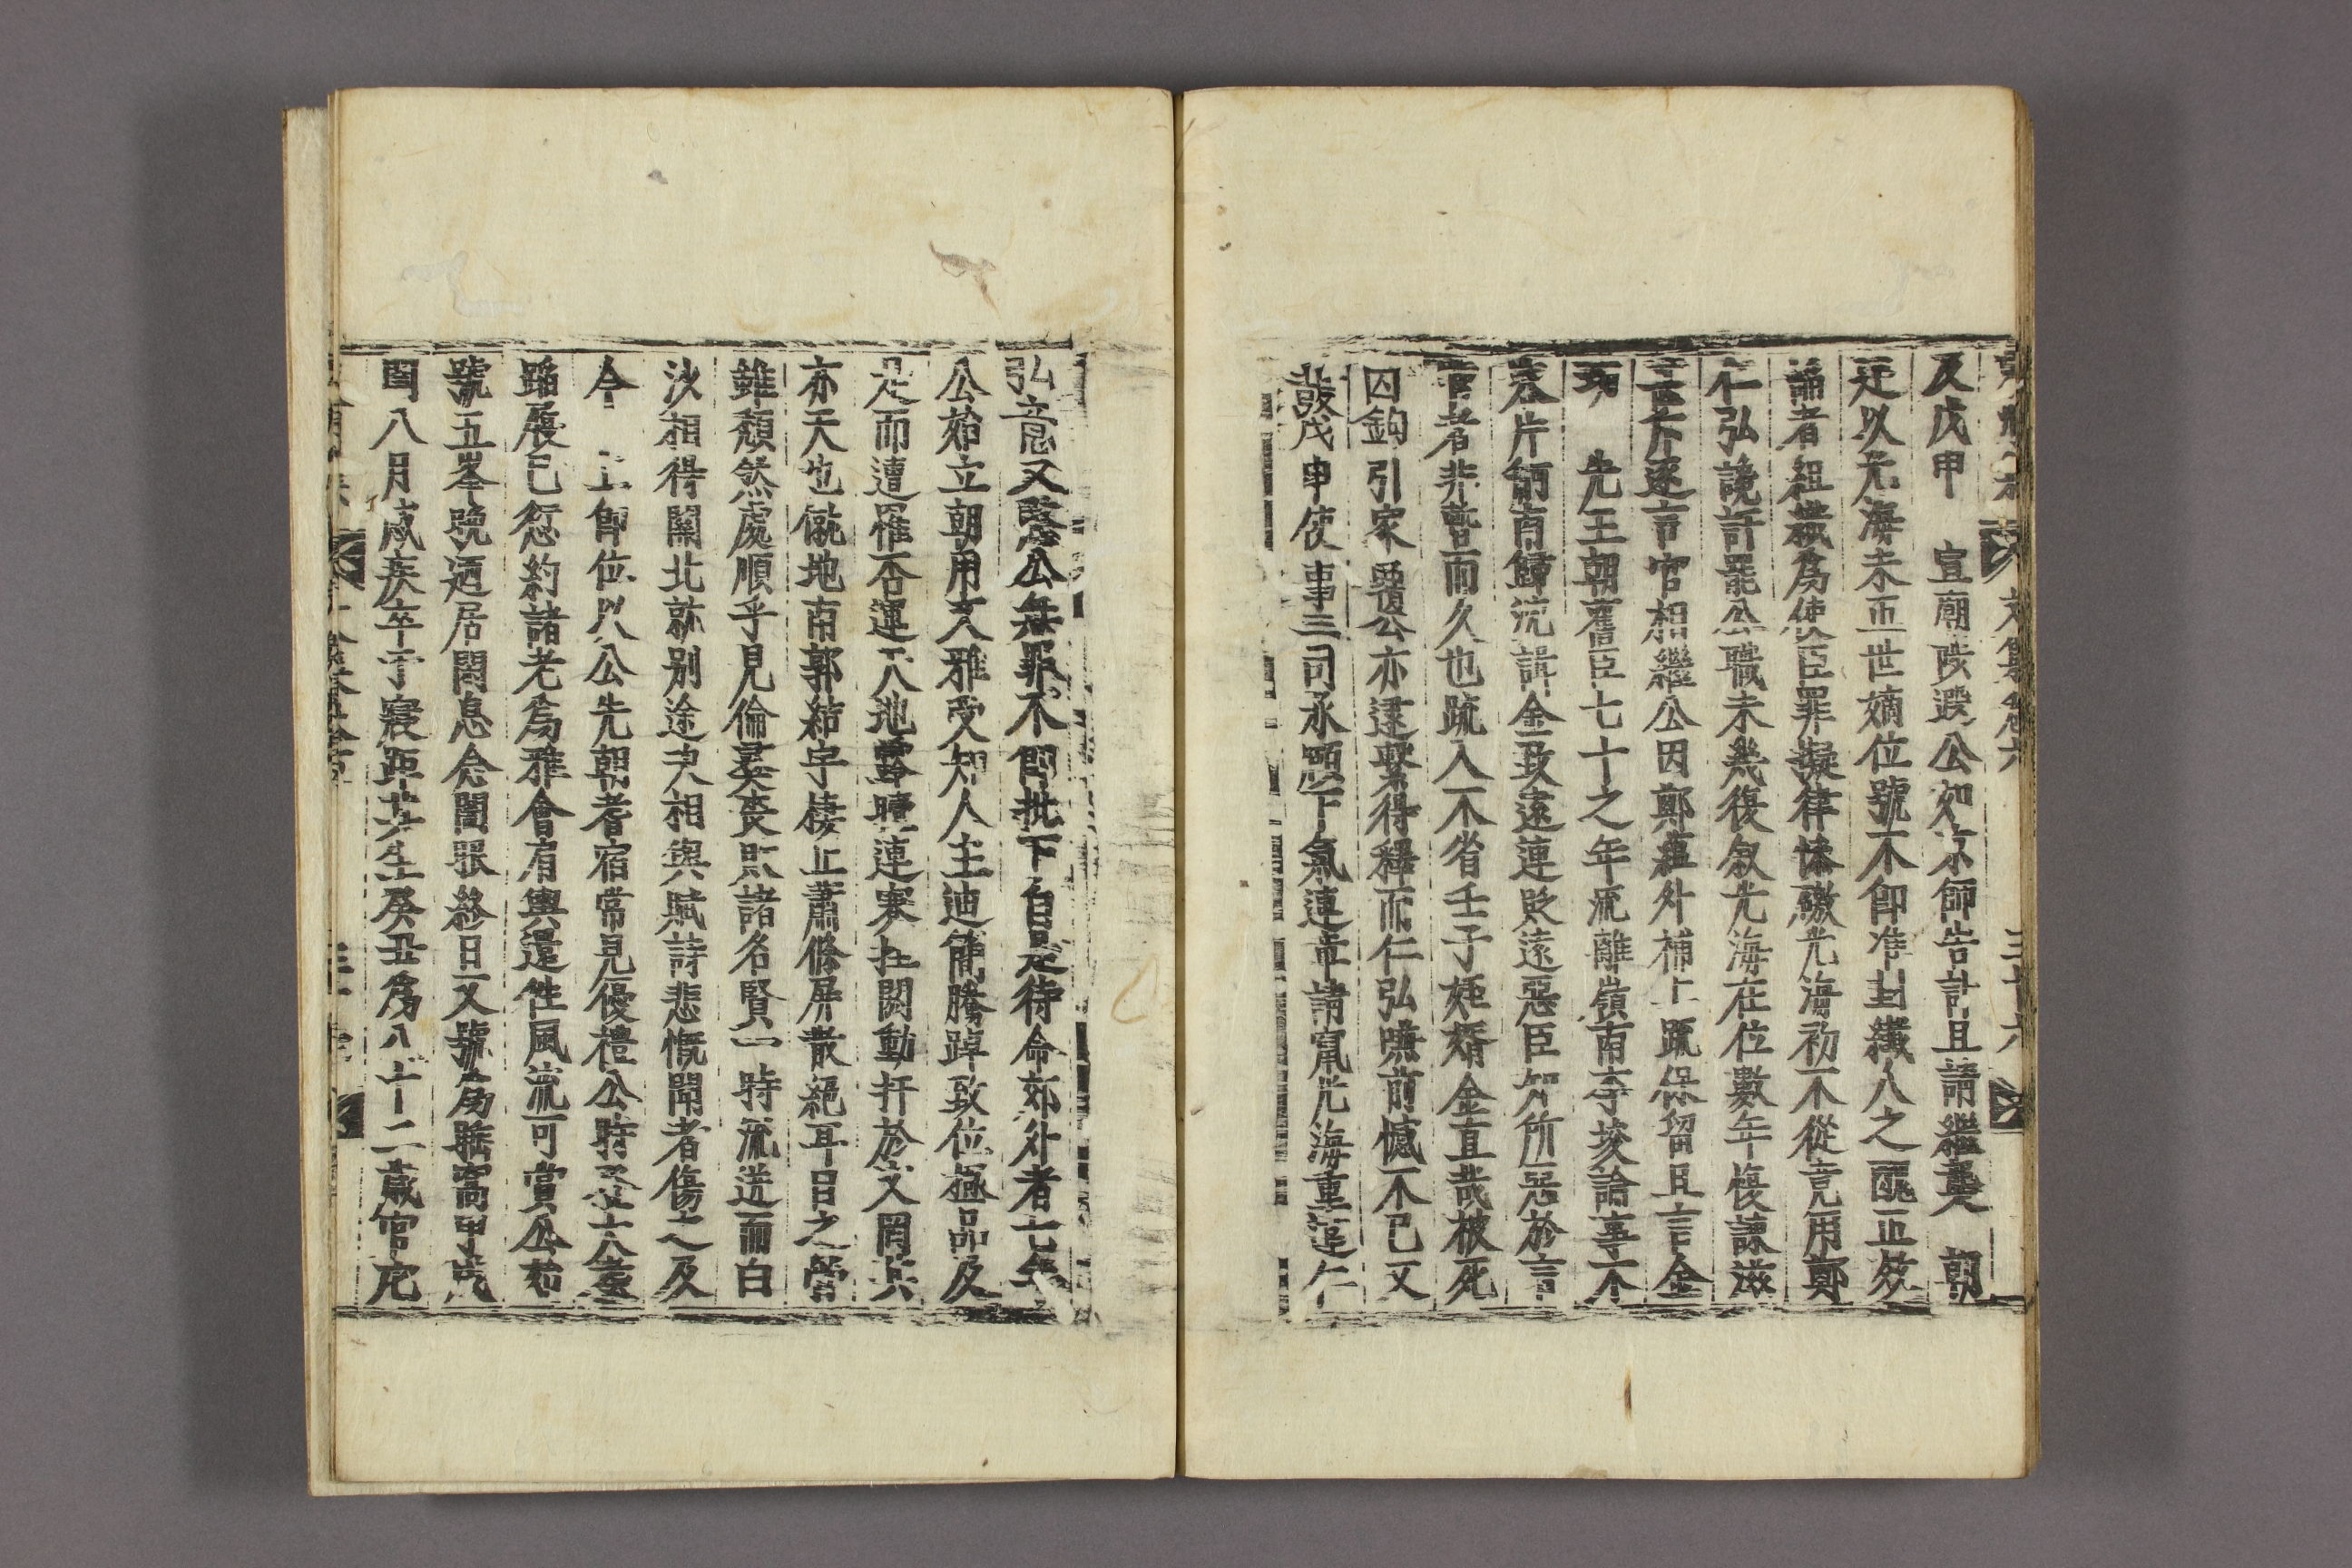 文集卷六 三十六
及戊申 宣廟陟遐公如京師告訃且請繼襲 朝
廷以光海未正世嫡位號不卽准封纖人之醜正發
論者組織爲使臣罪擬律慘礉光海初不從竟用鄭
仁弘讒訐罷公職未幾復敘光海在位數年愎諫滋
斥逐言官相繼公因鄭蘊外補上疏保留且言金
先王朝舊臣七十之年流離嶺南李埈論事不
片 南歸 諱金致遠連貶遠惡臣知所惡於言
言者非暫而久也疏入不省壬子姪壻金直哉被死
囚鉤引家覆公亦逮繫得釋而仁弘嗛前憾不已又
發戊申使事三司承慂下氣連章請竄光海重違仁
弘意又愍公無罪不卽批下自是待命郊外者七年
公始立朝用文雅受知人主迪簡騰踔致位極品及
是而遭罹否運 迍 連蹇在閑動扞於文罔其
亦天也僦地南郭結宇棲止蕭條屛散絕耳目之營
雖頹然處順乎見倫彛喪 諸名賢一時流迸而白
沙相得關北就別途次相與賦詩悲慨聞者傷之及
今 上卽位以公先朝耆宿常見優禮公時
蹈展已愆約諸老爲雅會肩輿還往風流可賞公始
號五峯晩迺居閑息念闔眼終日又號爲 窩甲戌
閏八月感疾卒于寢距其生癸丑爲八十二歲官庀